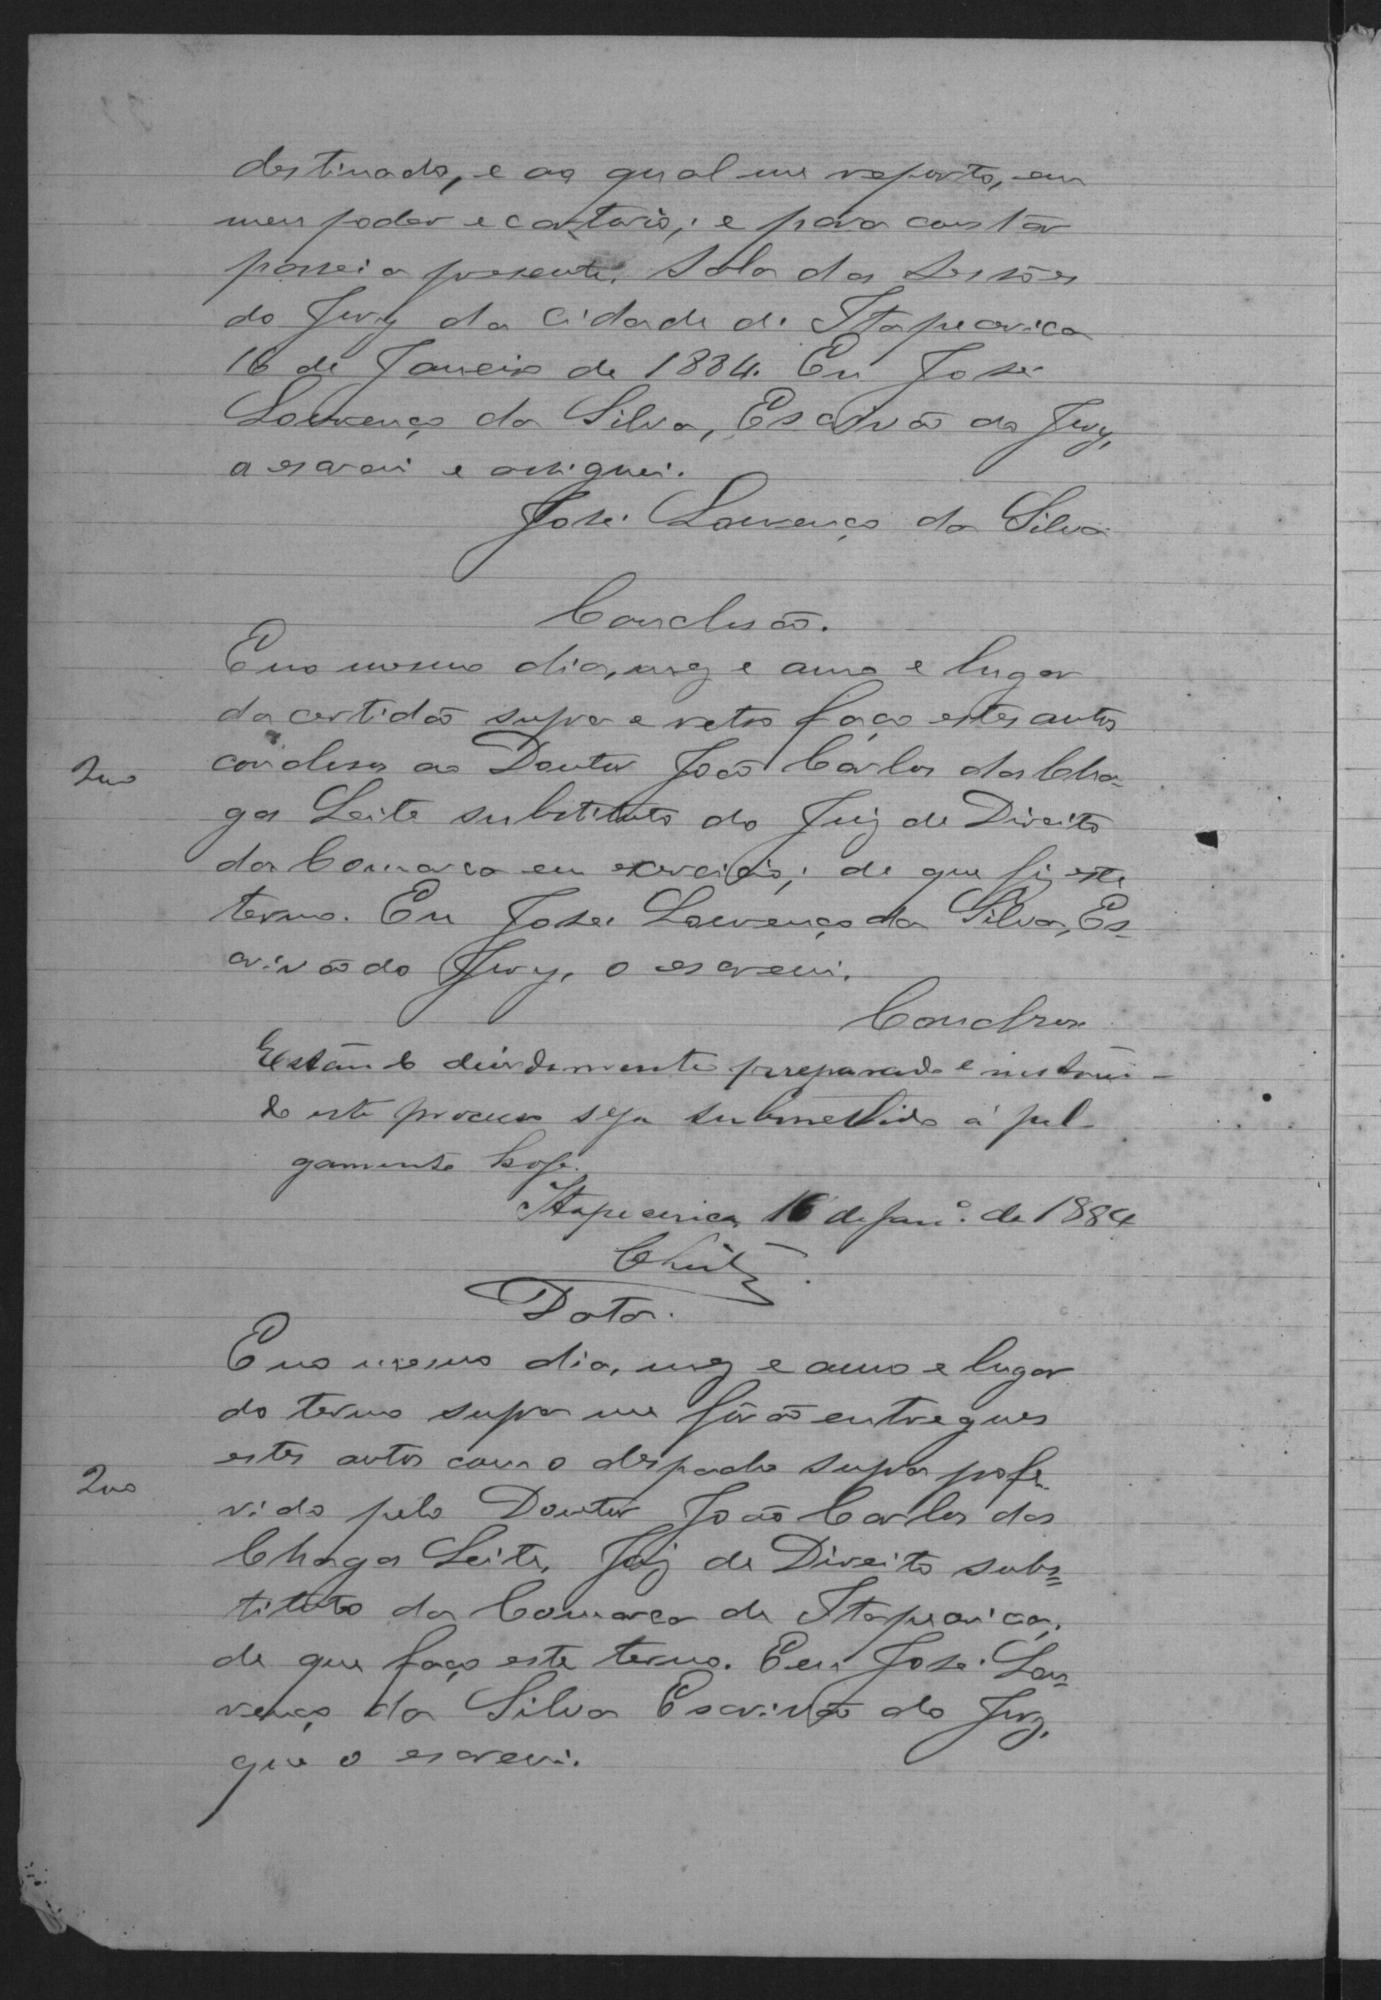 destinado, e ao qual me reporto, em
meu poder e cartorio; e para constar
passei a presente. Sala das Sessões
do Jury da Cidade de Itapecerica
16 de Janeiro de 1884. Eu José
Lourenço da Silva, Escrivão do Jury,
a escrevi e assignei.
José Lourenço da Silva
Conclusão.
E no mesmo dia, mez e anno e lugar
da certidão supra e retro faço estes autos
conclusos ao Doutor João Carlos das Cha-
2no
gas Leite substituto do Juiz de Direito
da Comarca em exercicio; de que fiz este
termo. Eu José Lourenço da Silva, Es-
crivão do Jury, o escrevi.
Conclusos
Estando devidamente preparado e instrui-
do este processo seja submettido á jul-
gamento hoje.
Itapecerica 16 de Janº. de 1884
Data.
E no mesmo dia, mez e anno e lugar
do termo supra me fôrão entregues
estes autos com o despacho supra profe-
2no
rido pelo Doutor João Carlos das
Chagas Leite, Juiz de Direito subs=
tituto da Comarca de Itapecerica,
de que faço este termo. Eu José Lou=
renço da Silva Escrivão do Jury,
que o escrevi.